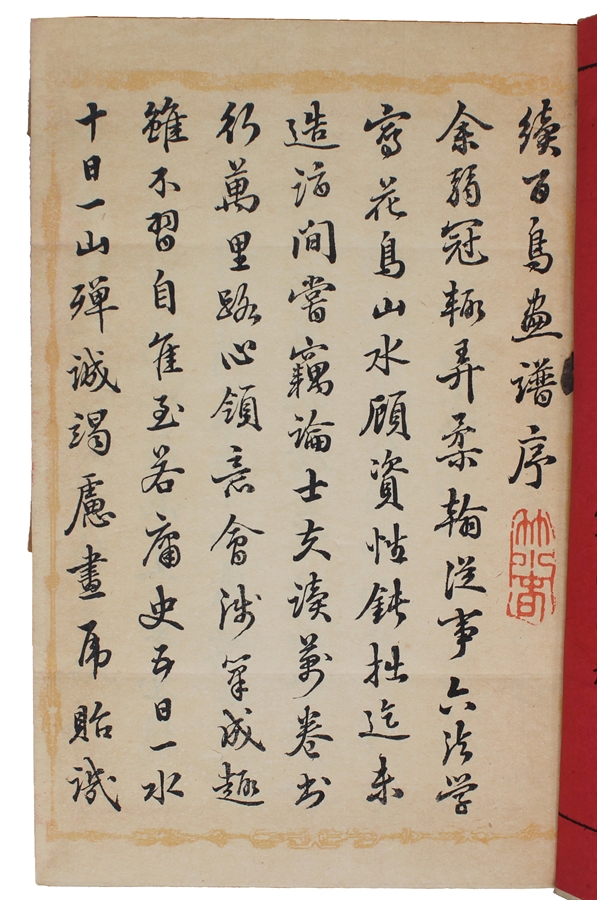 續百鳥畫譜序
余弱冠輒弄柔翰從事六法学
寫花鳥山水顧資性鈍拙迄未
造詣間嘗竊論士夫读萬卷书
行萬里路心領意會涉筆成趣
雖不習自佳至若庸史五日一水
十日一山殫誠竭慮畫虎貽譏